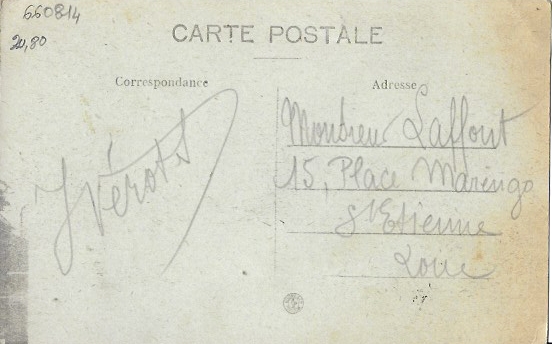 660814
20,80
CARTE POSTALE
Correspondance
Adresse
Monsieur Laffont
15, Place Marengo
St Etienne
Loire